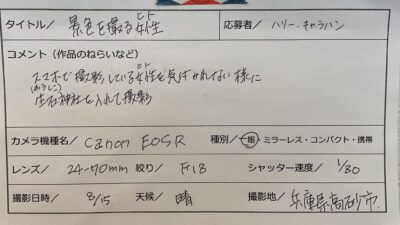 タイトル／ 景色を撮る女性 ヒト 応募者／ ハリー・キャラハン
コメント（作品のねらいなど）
スマホで撮影している女性を気ずかれない様に ヒト
生石神社を入れて撮影 (おうしこ)
カメラ機種名／ Canon EOSR 種別／ 一眼・ミラーレス・コンパクト・携帯
レンズ／ 24-70mm 絞り／ F18 シャッター速度／ 1/80
撮影日時／ 8/15 天候／ 晴 撮影地／ 兵庫県高砂市.